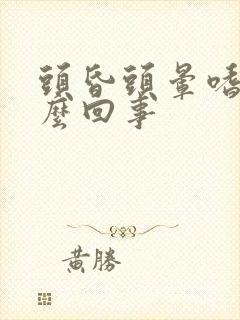 頭昏頭暈嗜
麼回事
黃勝